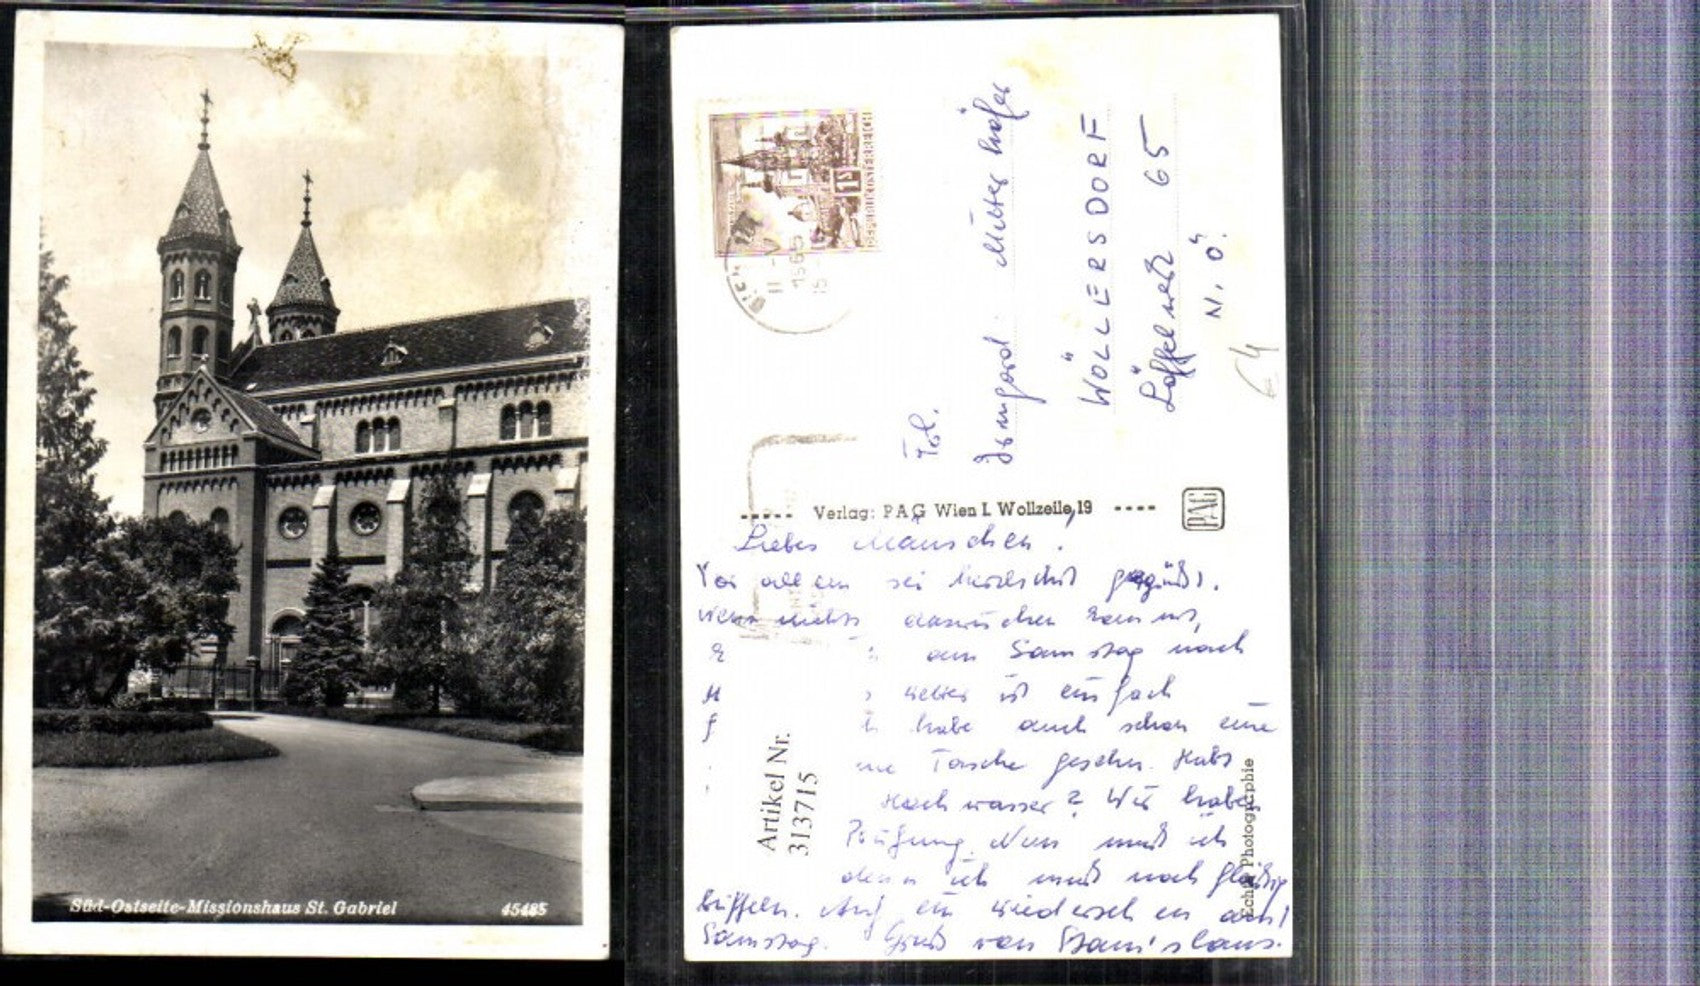 Süd-Ostseite-Missionshaus St. Gabriel
45485
REPUBLIK ÖSTERREICH
1S
Frl.
Irmgard Mitterhöfer
WÖLLERSDORF
65
N. Ö.
€ 4
Verlag: PAG Wien I. Wollzeile 19
PAG
Liebes Mäuschen!
Vor allem sei herzlichst gegrüßt.
Wenn nichts dazwischen kommt,
am Samstag nach
ist einfach
habe auch schon eine
Tasche gesehen. Habt
Hochwasser? Wir haben
Prüfung. Nun muß ich
denn ich muß noch fleißig
büffeln. Auf ein Wiedersehen am
Samstag. Gruß von Stanislaus.
Artikel Nr.
313715
Echte Photographie